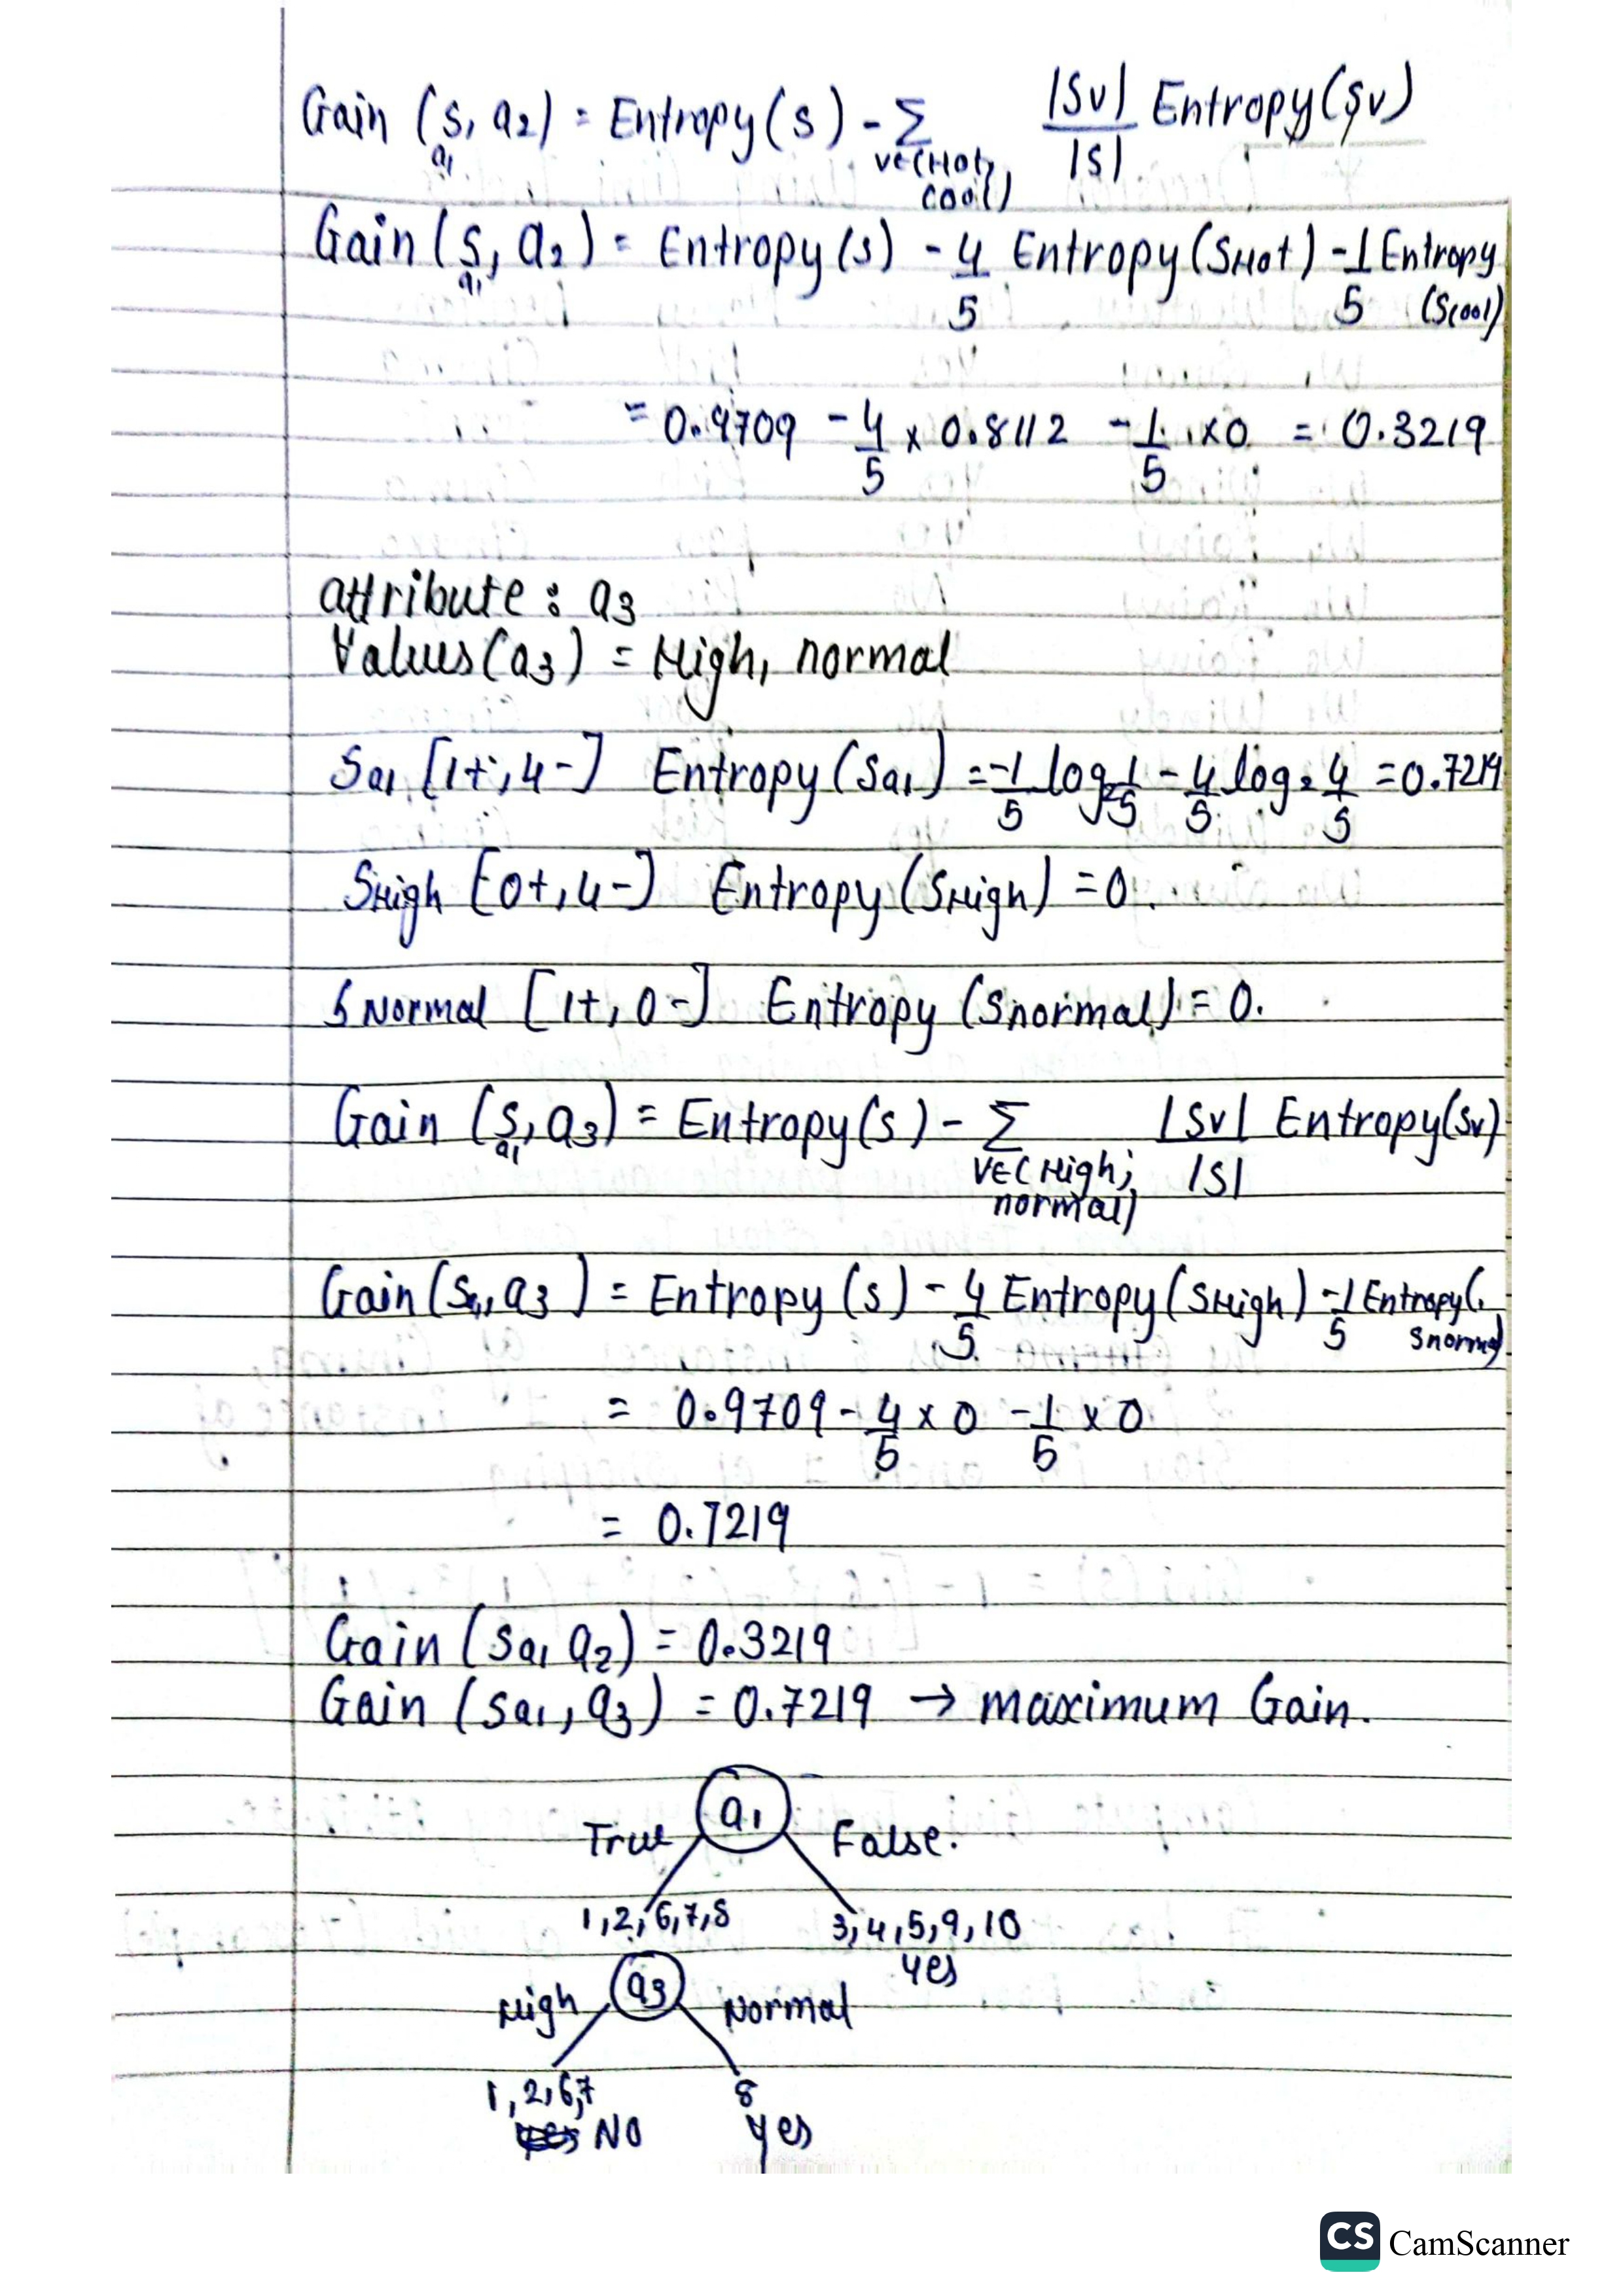 Gain (Sa1, a2) = Entropy(S) - Σ v∈(Hot, cool) |Sv|/|S| Entropy(Sv)
Gain (Sa1, a2) = Entropy(S) - 4/5 Entropy(SHot) - 1/5 Entropy (Scool)
= 0.9709 - 4/5 x 0.8112 - 1/5 x 0 = 0.3219
attribute : a3
Values(a3) = High, normal
Sa1 [1+, 4-] Entropy(Sa1) = -1/5 log2 1/5 - 4/5 log2 4/5 = 0.7219
SHigh [0+, 4-] Entropy(SHigh) = 0.
SNormal [1+, 0-] Entropy (Snormal) = 0.
Gain (Sa1, a3) = Entropy(S) - Σ v∈(High, normal) |Sv|/|S| Entropy(Sv)
Gain (Sa1, a3) = Entropy (S) - 4/5 Entropy(SHigh) - 1/5 Entropy(Snormal)
= 0.9709 - 4/5 x 0 - 1/5 x 0
= 0.7219
Gain (Sa1 a2) = 0.3219
Gain (Sa1, a3) = 0.7219 → maximum Gain.
a1
True False.
1, 2, 6, 7, 8 3, 4, 5, 9, 10
yes
a3
High Normal
1, 2, 6, 7 8
NO yes
CS CamScanner